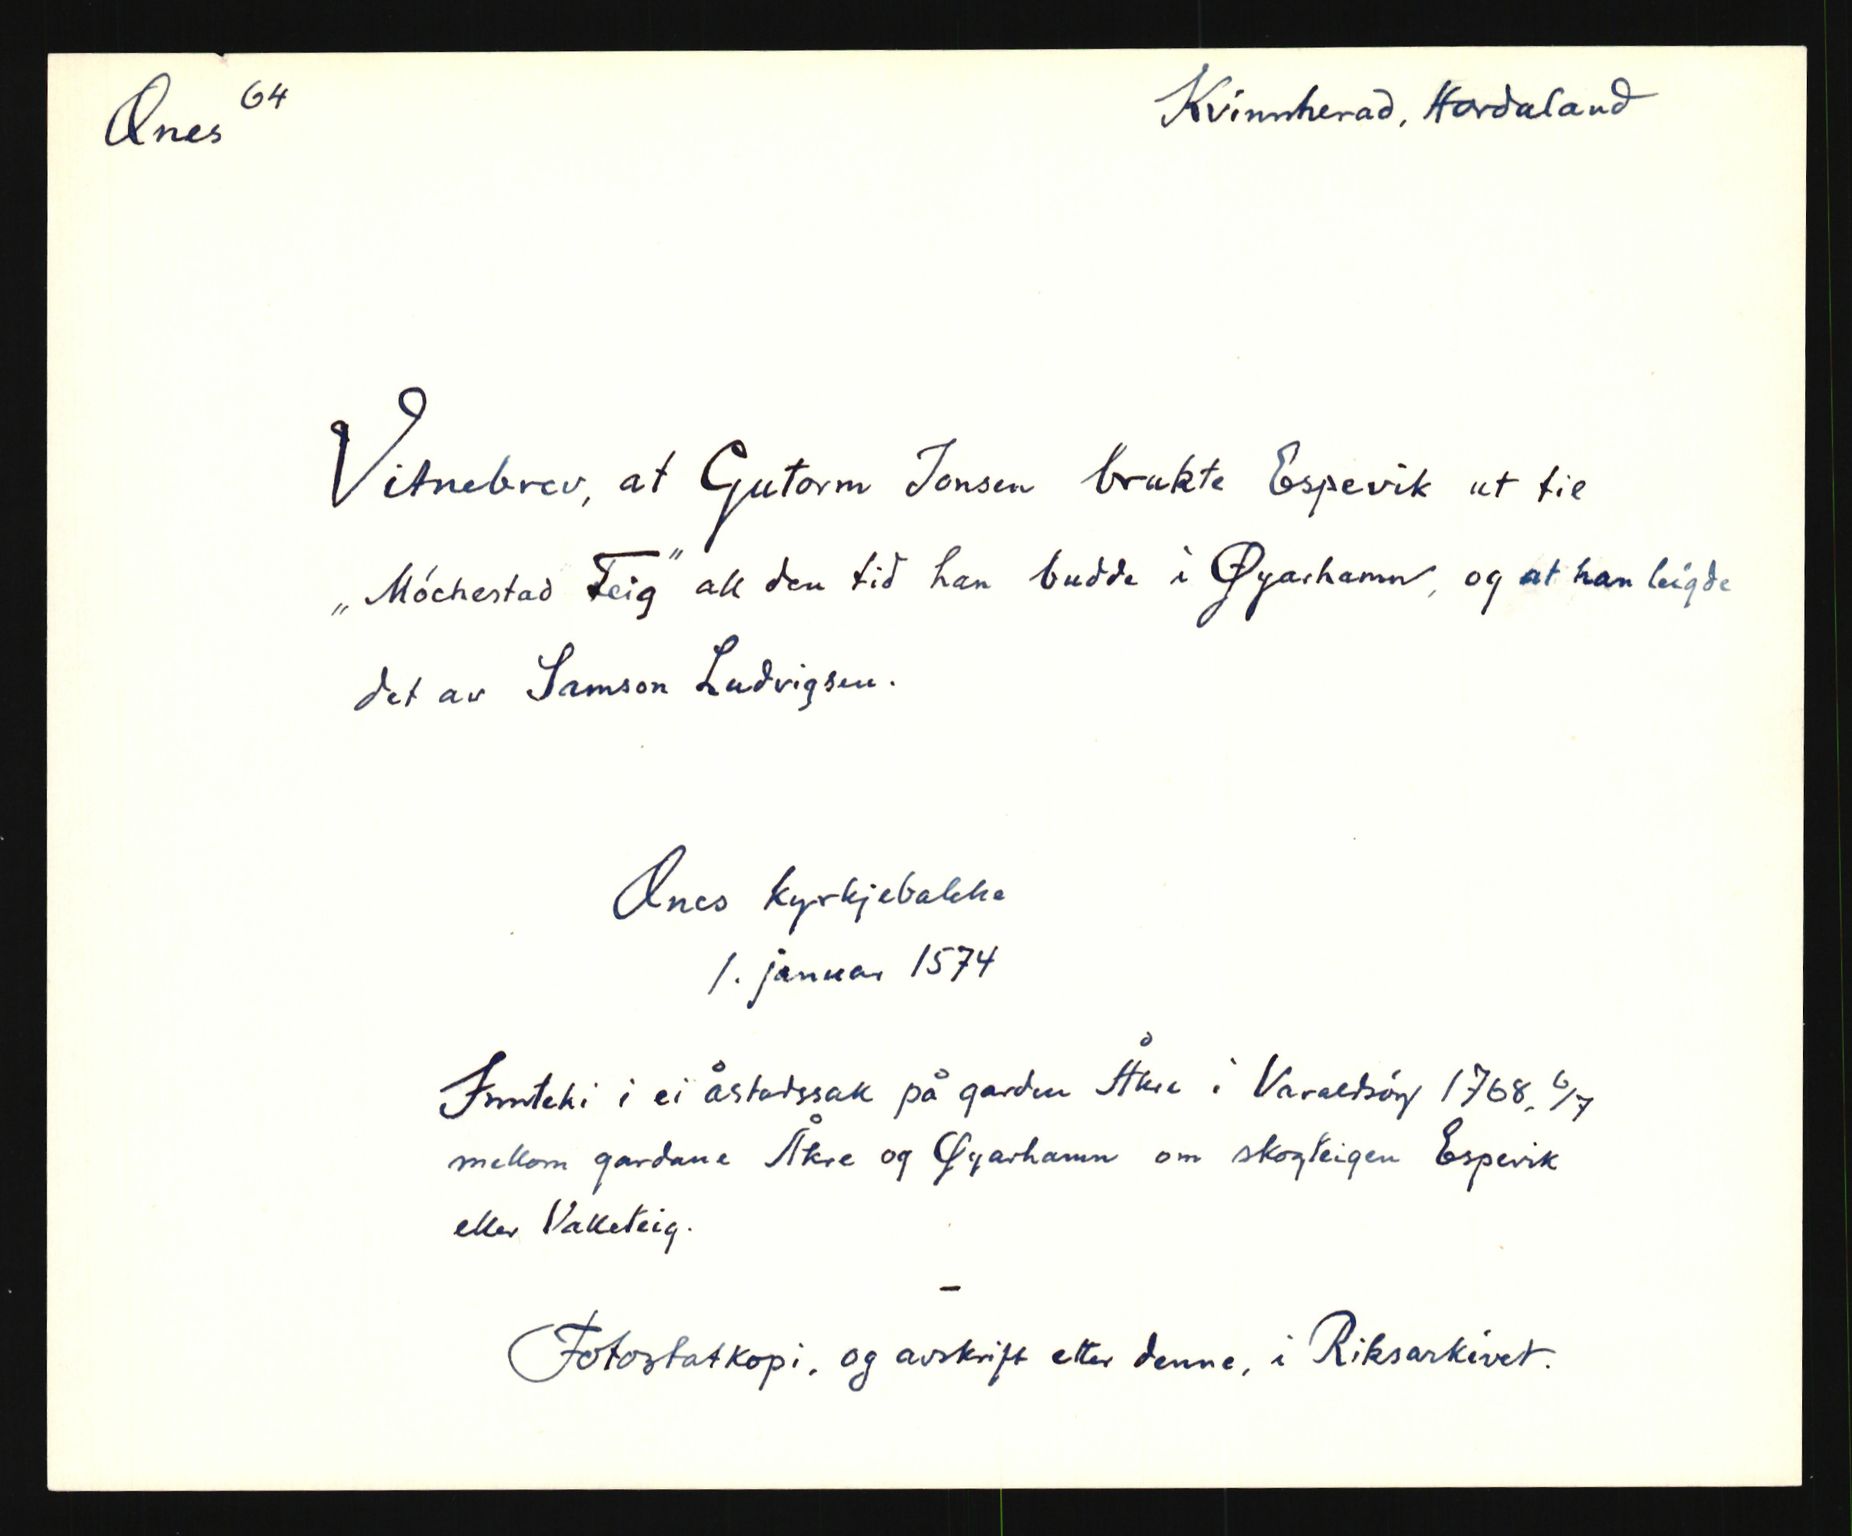 Ænes 64
Kvinnherad, Hordaland
Vitnebrev, at Gutorm Jonsen brukte Espevik ut til
„Móchestad Teig" all den tid han budde i Øyarhamn, og at han leigde
det av Samson Ludvigsen.
Ænes kyrkjebakke
1. januar 1574
Innteki i ei åstadssak på garden Åkre i Varaldsóy 1768, 6/7
mellom gardane Åkre og Øyarhamn om skogteigen Espevik
eller Valleteig.
–
Fotostatkopi, og avskrift etter denne, i Riksarkivet.